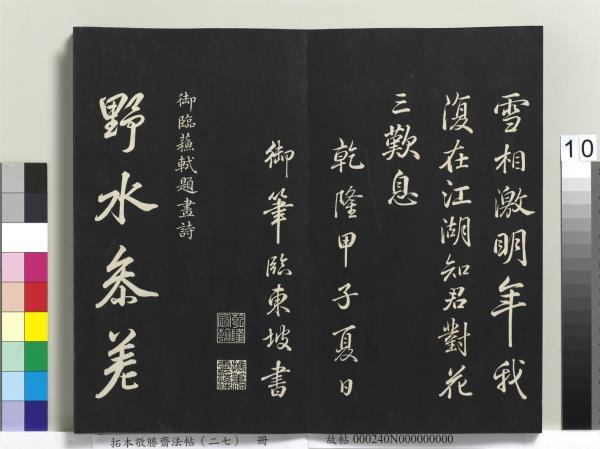 雪相激明年我
復在江湖知君對花
三歎息
乾隆甲子夏日
御筆臨東坡書
御臨蘇軾題畫詩
野水參差
10
拓本敬勝齋法帖（二七） 冊
故帖 000240N000000000